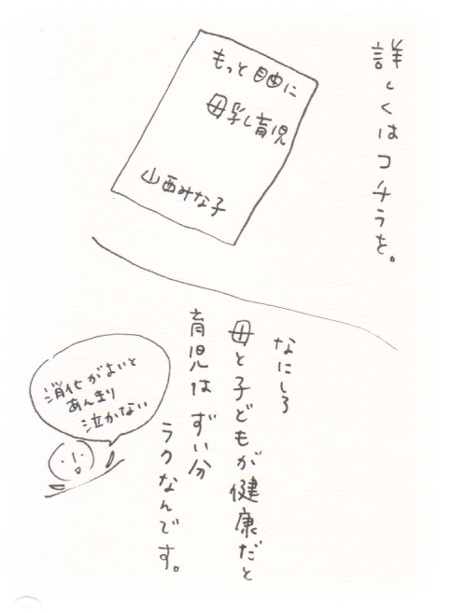 詳しくはコチラを。
もっと自由に
母乳育児
山西みな子
なにしろ
母と子どもが健康だと
育児はずい分
ラクなんです。
消化がよいと
あんまり
泣かない